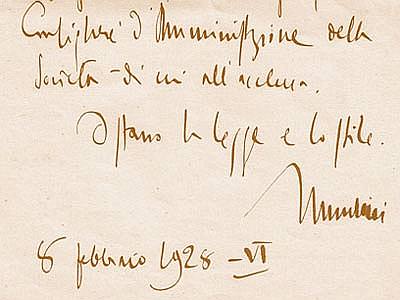 Consigliere d'Amministrazione della
Società - di cui all'acclusa.
Ostano la legge e lo stile.
Mussolini
8 febbraio 1928 - VI